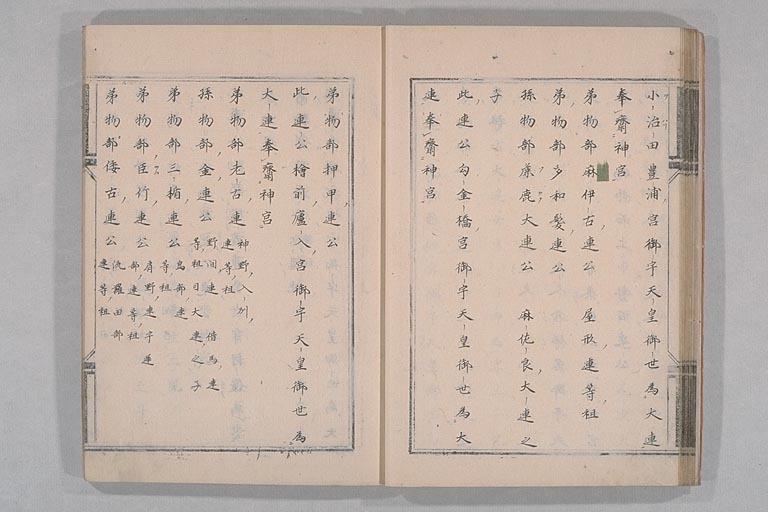 小治田豊浦宮御宇天皇御世為大連
奉齋神宮
弟物部麻伊古連公 屋形連等祖
弟物部多和髪連公
孫物部麁鹿大連公 麻佐良大連之
子
此連公勾金橋宮御宇天皇御世為大
連奉齋神宮
弟物部押甲連公
此連公檜前廬入宮御宇天皇御世為
大連奉齋神宮
弟物部老古連公 神野入州
連等祖
孫物部金連公 野間連借馬連
等祖目大連之子
弟物部三楯連公 鳥部連
等祖
弟物部臣竹連公 肩野連宇遅
部連等祖
弟物部倭古連公 流羅田部
連等祖